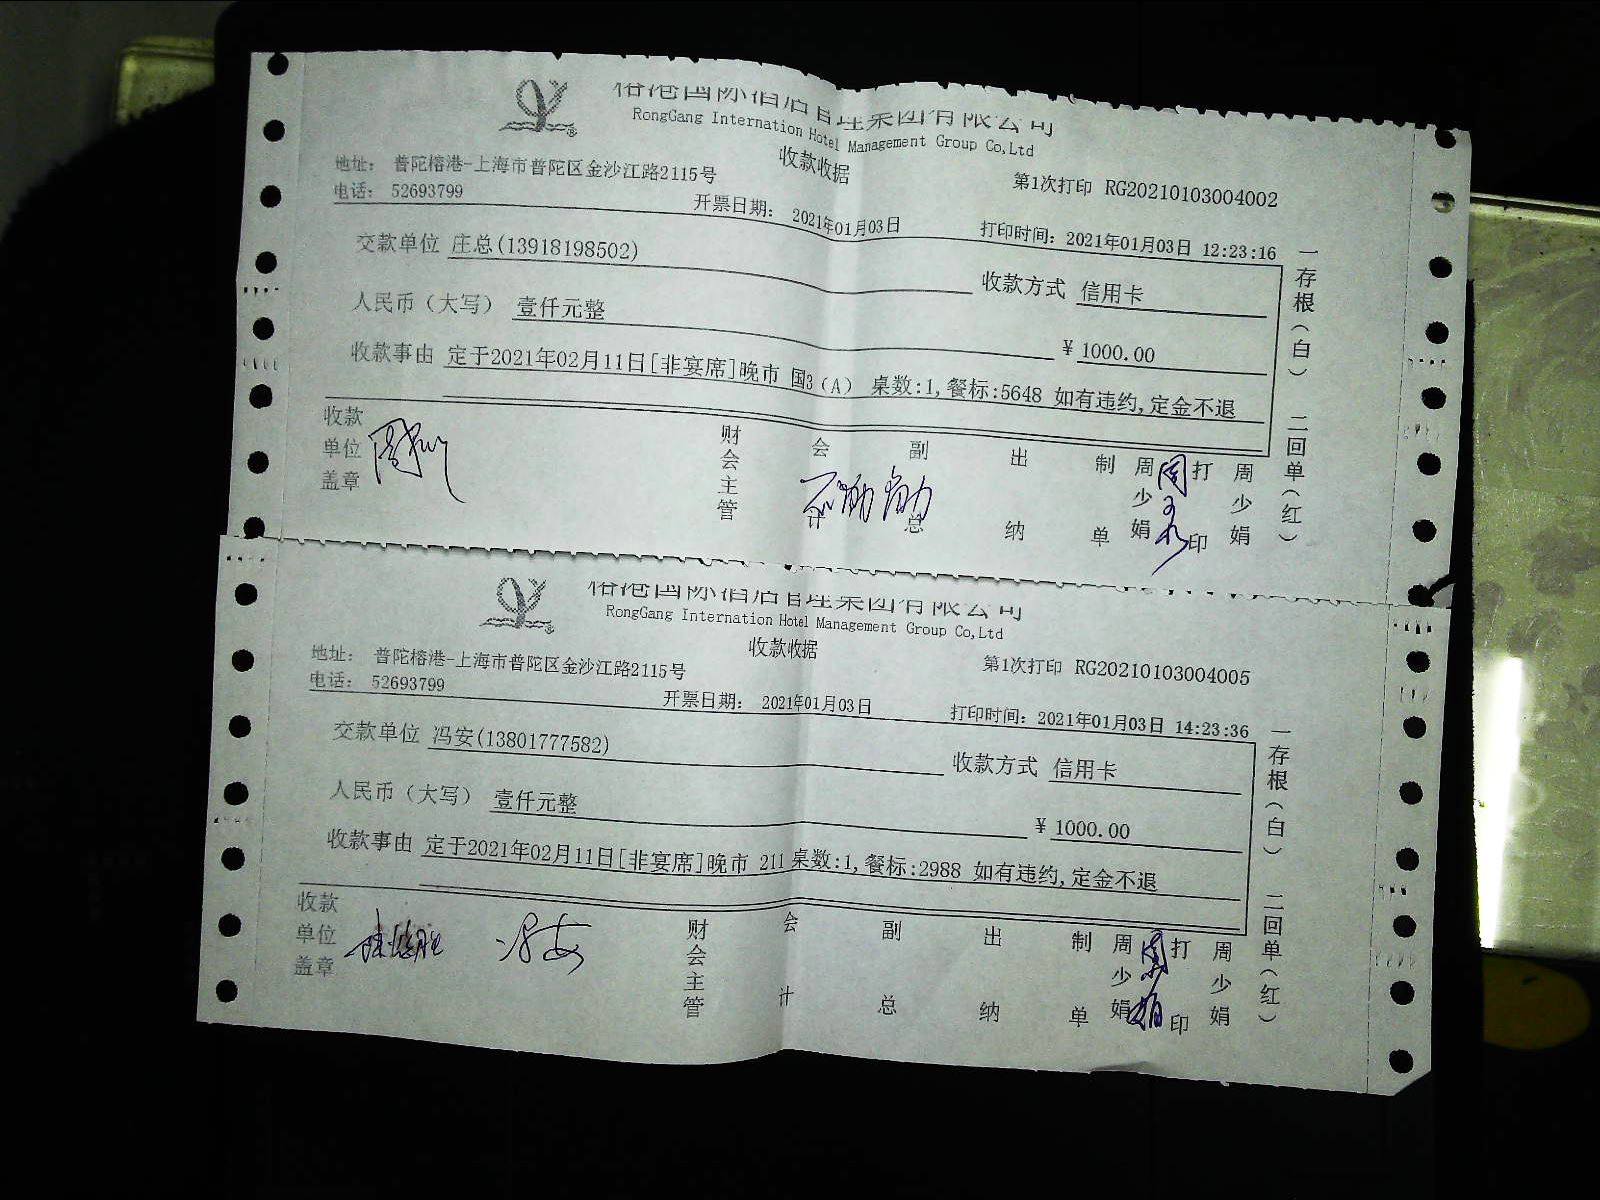 榕港国际酒店管理集团有限公司
RongGang Internation Hotel Management Group Co,Ltd
收款收据
地址: 普陀榕港-上海市普陀区金沙江路2115号
第1次打印 RG20210103004002
电话: 52693799
开票日期: 2021年01月03日
打印时间: 2021年01月03日 12:23:16
交款单位 庄总(13918198502)
收款方式 信用卡
人民币(大写) 壹仟元整
¥ 1000.00
收款事由 定于2021年02月11日[非宴席]晚市 国3(A) 桌数:1,餐标:5648 如有违约,定金不退
收款单位盖章
财会主管
会计
副总
出纳
制单
周少娟
打印
周少娟
一存根(白) 二回单(红)
榕港国际酒店管理集团有限公司
RongGang Internation Hotel Management Group Co,Ltd
收款收据
地址: 普陀榕港-上海市普陀区金沙江路2115号
第1次打印 RG20210103004005
电话: 52693799
开票日期: 2021年01月03日
打印时间: 2021年01月03日 14:23:36
交款单位 冯安(13801777582)
收款方式 信用卡
人民币(大写) 壹仟元整
¥ 1000.00
收款事由 定于2021年02月11日[非宴席]晚市 211 桌数:1,餐标:2988 如有违约,定金不退
收款单位盖章
冯安
财会主管
会计
副总
出纳
制单
周少娟
周少娟
打印
周少娟
一存根(白) 二回单(红)